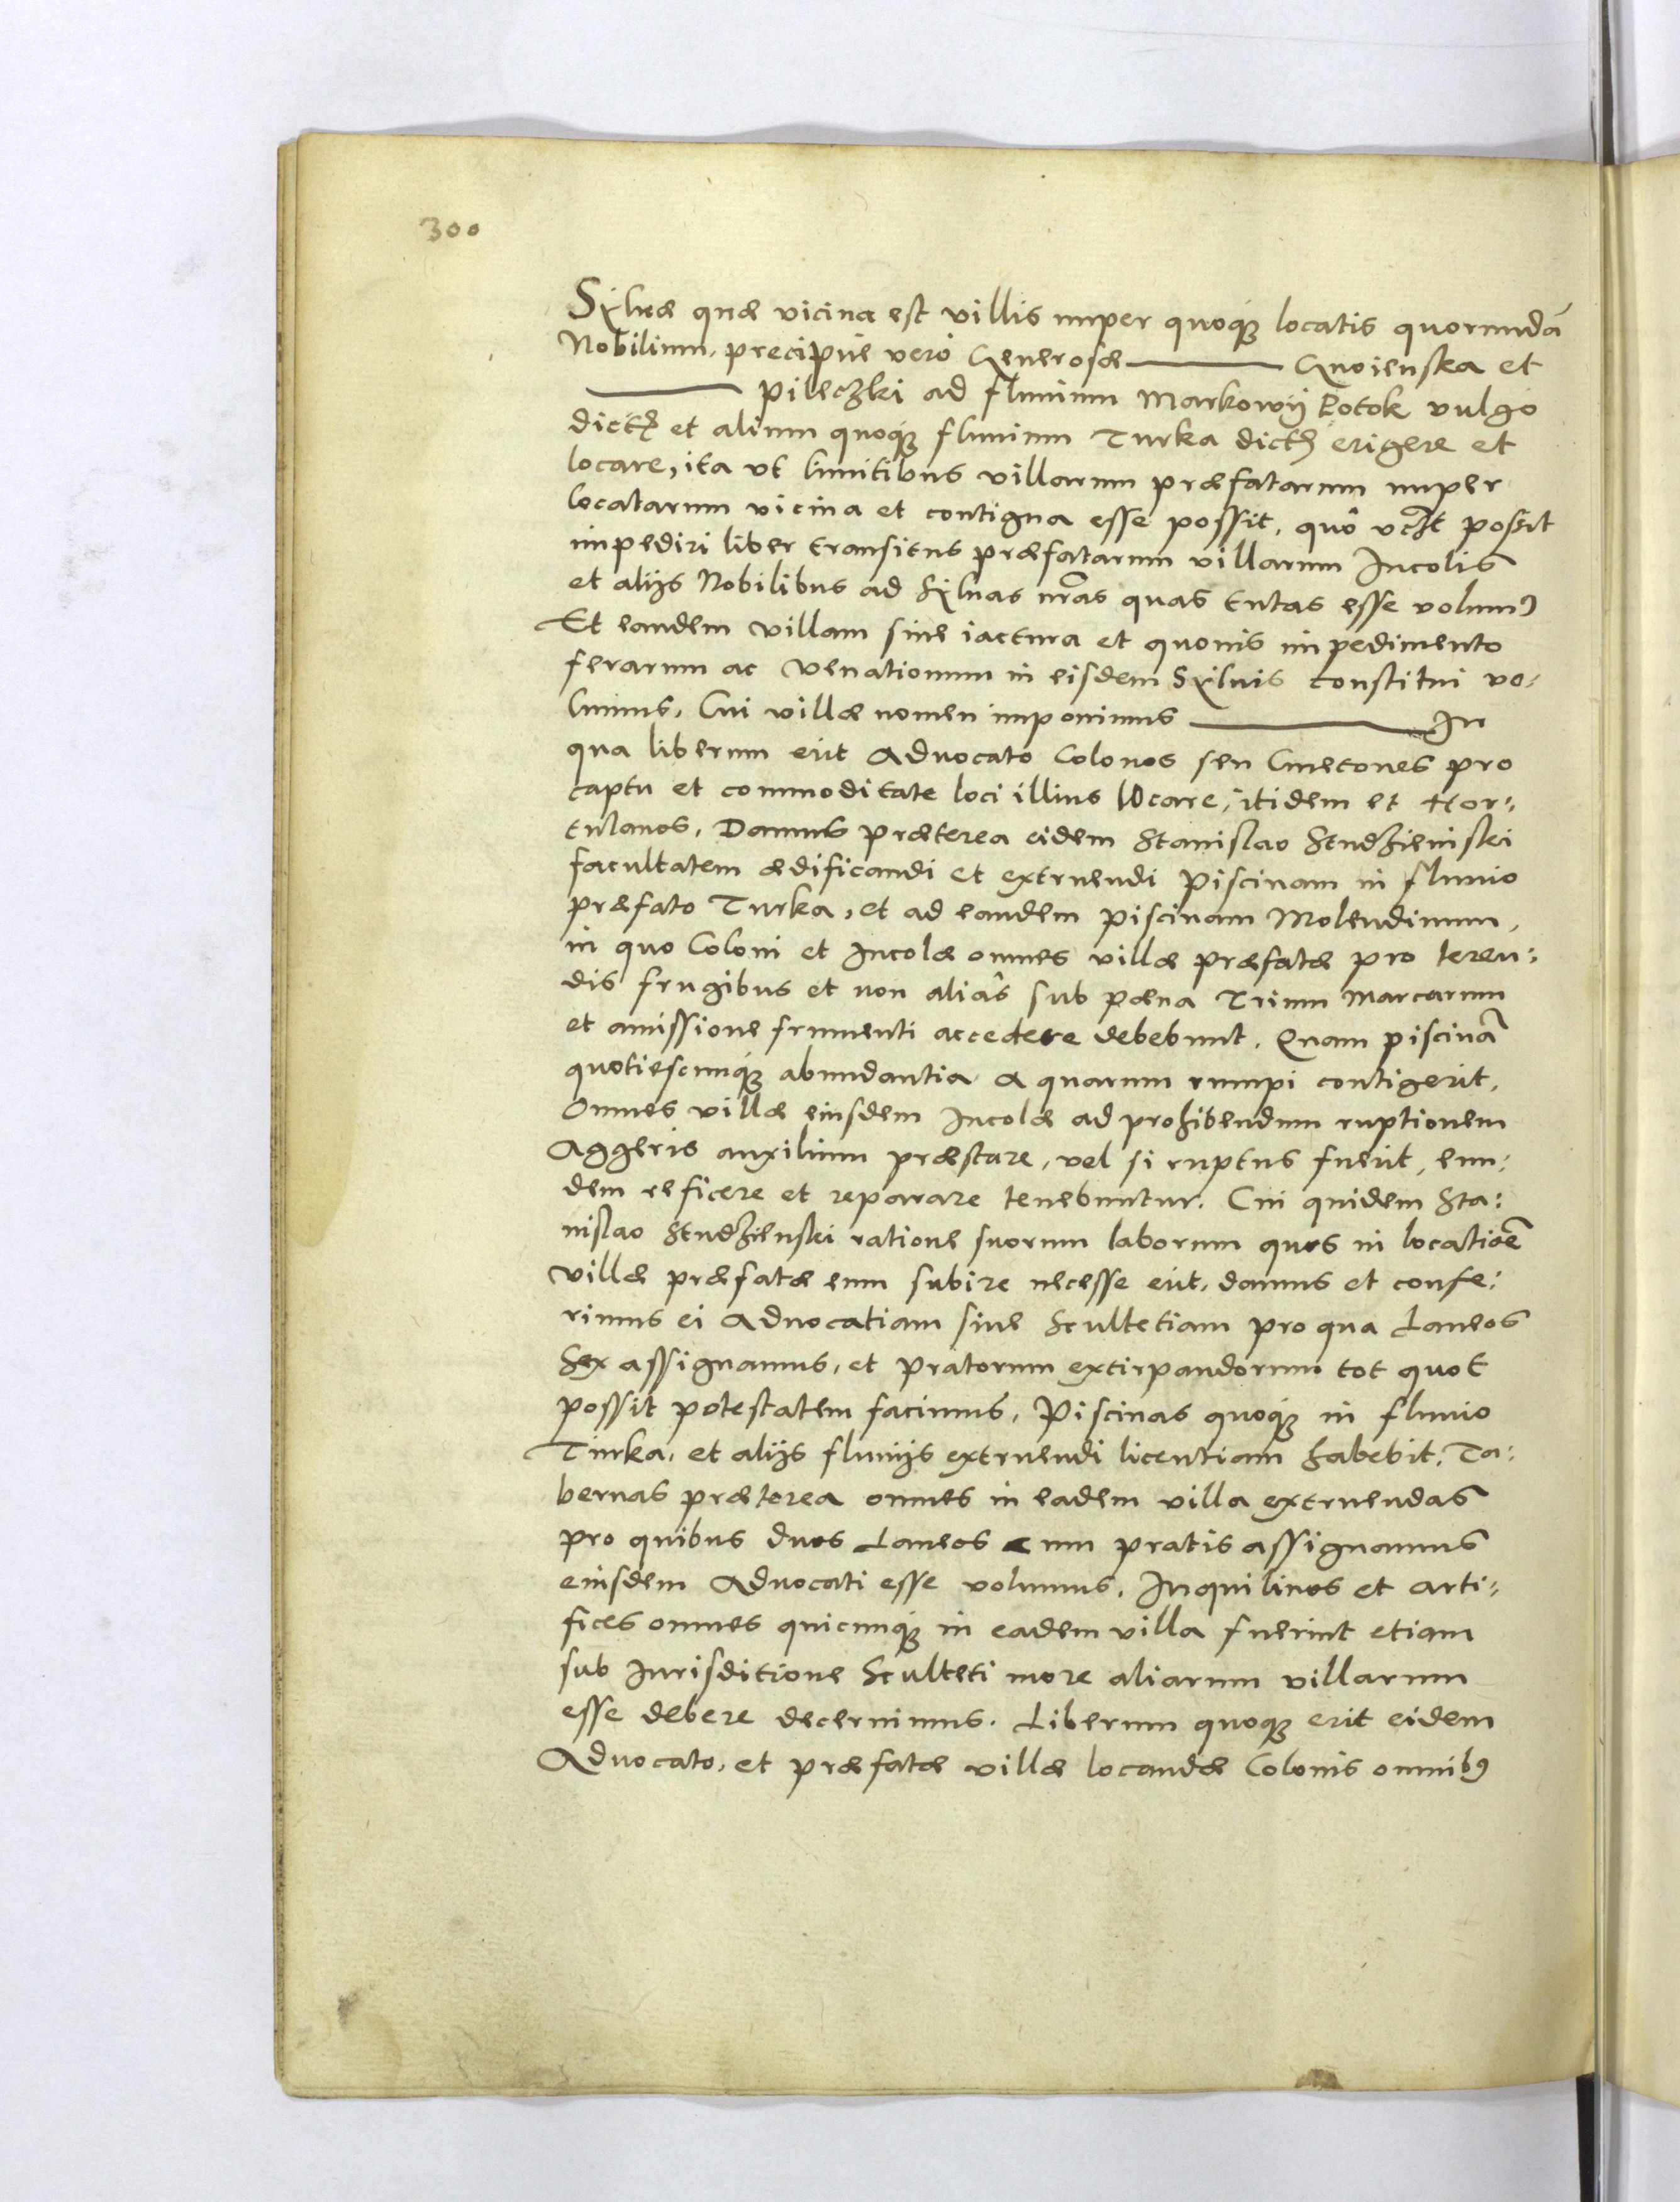 300
Sÿluæ quæ vicina est villis nuper quoq́ꝫ locatis quorundā
Nobilium, precipue vero Generosæ ——— Gnoienska et
——— Pileczki ad fluuium Markowÿ Potok vulgo
dictū et alium quoq́ꝫ fluuium Turka dictū erigere et
locare, ita vt limitibus villarum præfatarum nuper
locatarum vicina et contigua esse possit, quô possit
impediri liber transitus præfatarum villarum Incolis
et alÿs Nobilibus ad Sÿluas nr̃as quas tutas esse volumꝰ
Et eandem villam sine iactura et quouis impedimento
ferarum ac venationum in eisdem Sÿluis constitui vo⸗
lumus, Cui villæ nomen imponimus ——— In
qua liberum erit Aduocato Colonos seu Cmetones pro
captu et commoditate loci illius locare, itidem et Hor⸗
tulanos, Damus præterea eidem Stanislao Studzieniskei
facultatem ædificandi et extruendi Piscinam in fluuio
præfato Turka, et ad eandem piscinam Molendinum,
in quo Coloni et Incolæ omnes villæ præfatæ pro teren⸗
dis frugibus et non aliâs sub pæna Trium Marcarum
et amissione frumenti accedere debebunt, Quam piscinā
quotiescunq́ꝫ abundantia aquarum rumpi contigerit,
Omnes villæ eiusdem Incolæ ad prohibendum ruptionem
Aggeris auxilium præstare, vel si ruptus fuerit, eun⸗
dem reficere et reparare tenebuntur. Cui quidem Sta⸗
nislao Studzienskei ratione suorum laborum quos in locationē
villæ præfatæ eum subire necesse erit, damus et confe⸗
rimus ei Aduocatiam siue Scultetiam pro qua Laneos
Sex assignamus, et Pratorum extirpandorum tot quot
possit potestatem facimus, Piscinas quoq́ꝫ in fluuio
Turka, et alÿs fluuÿs extruendi licentiam habebit, Ta⸗
bernas præterea omnes in eadem villa extruendas
pro quibus duos Laneos cum pratis assignamus
eiusdem Aduocati esse volumus, Inquilinos et arti⸗
fices omnes quicunq́ꝫ in eadem villa fuerint etiam
sub Iurisditione Sculteti more aliarum villarum
esse debere decernimus. Liberum quoqꝫ erit eidem
Aduocato, et præfatæ villæ locandæ Colonis omnibꝰ